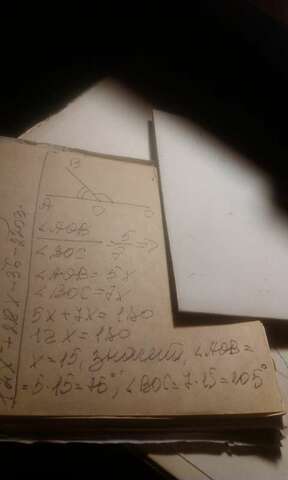 B
A O C
∠AOB
∠BOC = 5/7 =>
∠AOB = 5x
∠BOC = 7x
5x + 7x = 180
12x = 180
x = 15, значит, ∠AOB =
= 5·15 = 75°, ∠BOC = 7·15 = 105°